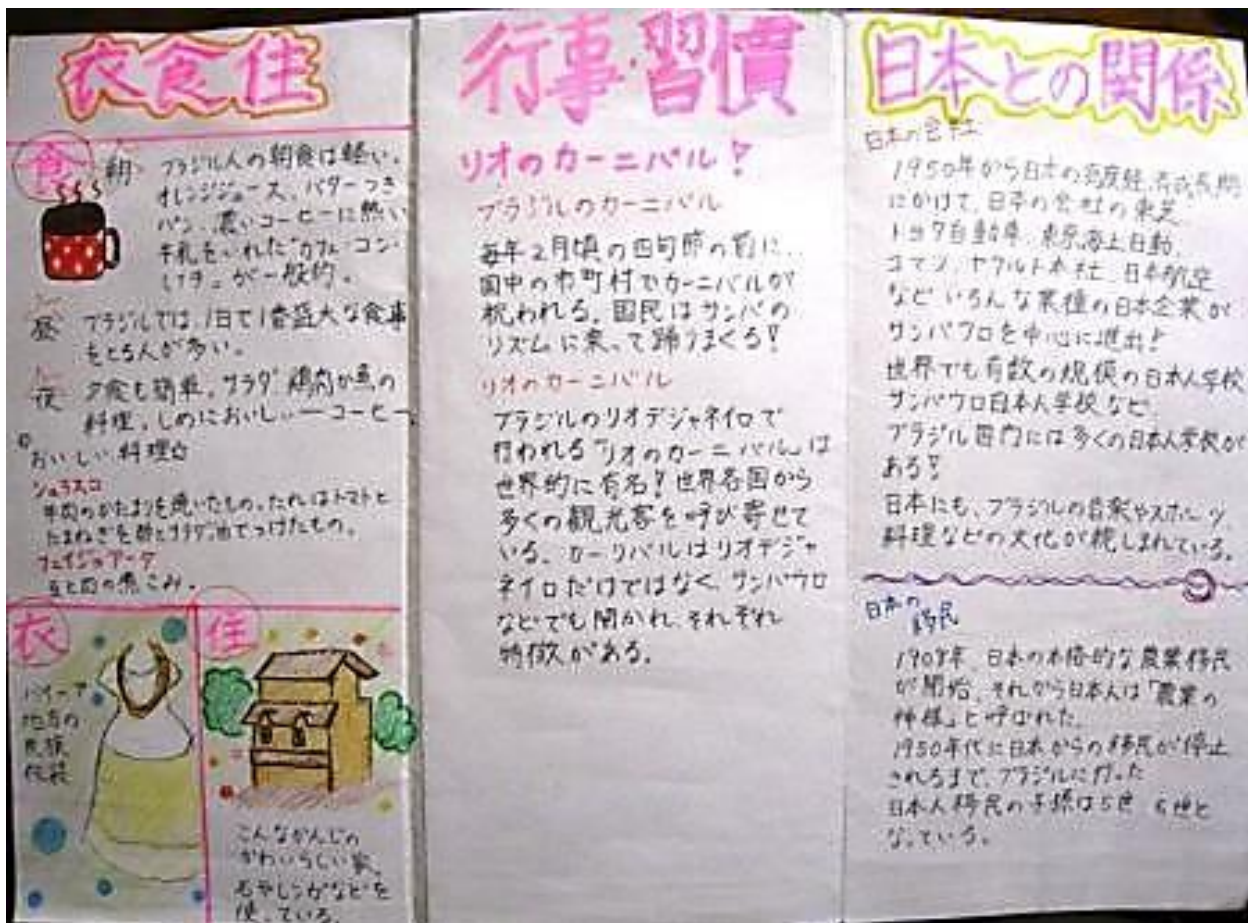 衣食住
食
朝
ブラジル人の朝食は軽い。
オレンジジュース、バターつき
パン、濃いコーヒーに熱い
牛乳をいれた"カフェ・コン・
が一般的。
昼
ブラジルでは、1日で1番盛大な食事
をとる人が多い。
夜
夕食も簡単。サラダ 鶏肉か魚の
料理。しめにおいしいーコーヒー。
おいしい料理☆
シュラスコ
牛肉のかたまりを焼いたもの。たれはトマトと
たまねぎを酢とサラダ油でつけたもの。
フェイジョアーダ
豆と肉の煮こみ。
衣
バイーア
地方の
民族
衣装
住
こんなかんじの
かわいらしい家。
石やレンガなどを
使っている。
行事・習慣
リオのカーニバル!
ブラジルのカーニバル
毎年2月頃の四旬節の前に、
国中の市町村でカーニバルが
祝われる。国民はサンバの
リズムに乗って踊りまくる!
リオのカーニバル
ブラジルのリオデジャネイロで
行われる「リオのカーニバル」は
世界的に有名!世界各国から
多くの観光客を呼び寄せて
いる。カーリバルはリオデジャ
ネイロだけではなく、サンパウロ
などでも開かれ、それぞれ
特徴がある。
日本との関係
日本の会社
1950年から日本の高度経済成長期
にかけて、日本の会社の東芝
トヨタ自動車、東京海上日動、
コマツ、ヤクルト本社、日本航空
など いろんな業種の日本企業が
サンパウロを中心に進出!
世界でも有数の規模の日本人学校
サンパウロ日本人学校など
ブラジル国内には多くの日本人学校が
ある!
日本にも、ブラジルの音楽やスポーツ
料理などの文化が親しまれている。
日本の
移民
1908年、日本の本格的な農業移民
が開始。それから日本人は「農業の
神様」と呼ばれた。
1950年代に日本からの移民が停止
されるまで、ブラジルに行った
日本人移民の子孫は5世 6世と
なっている。